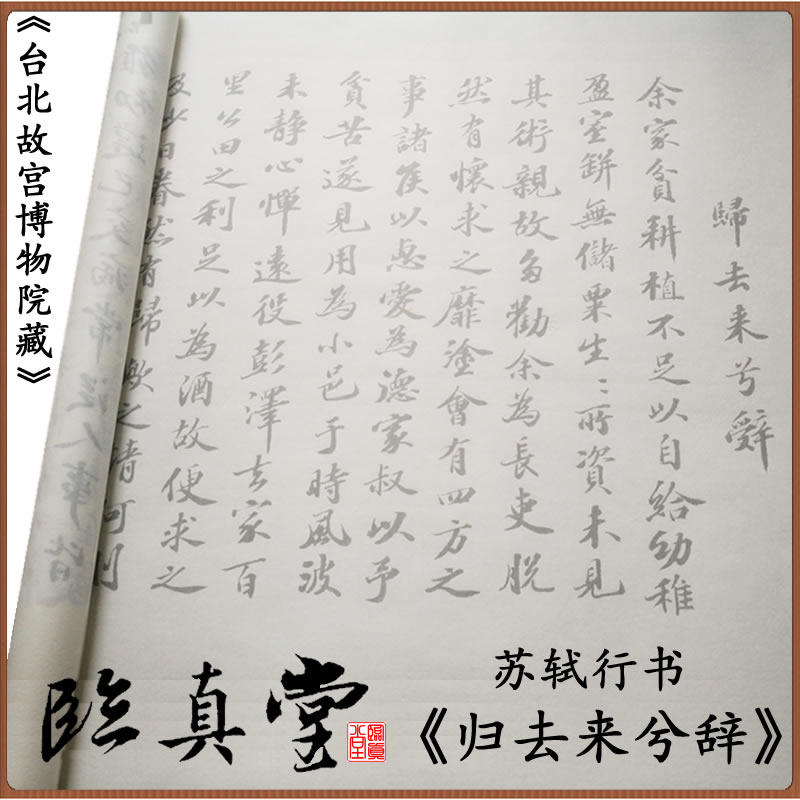 《台北故宫博物院藏》
歸去来兮辭
余家貧耕植不足以自給幼稚
盈室缾無儲粟生〻所資未見
其術親故多勸余為長吏脱
然有懷求之靡塗會有四方之
事諸侯以惠愛為德家叔以予
貧苦遂見用為小邑于時風波
未静心憚遠役彭澤去家百
里公田之利足以為酒故便求之
及少日眷然有歸歟之情何則
人事皆
臨真堂
臨真堂
苏轼行书
《归去来兮辞》